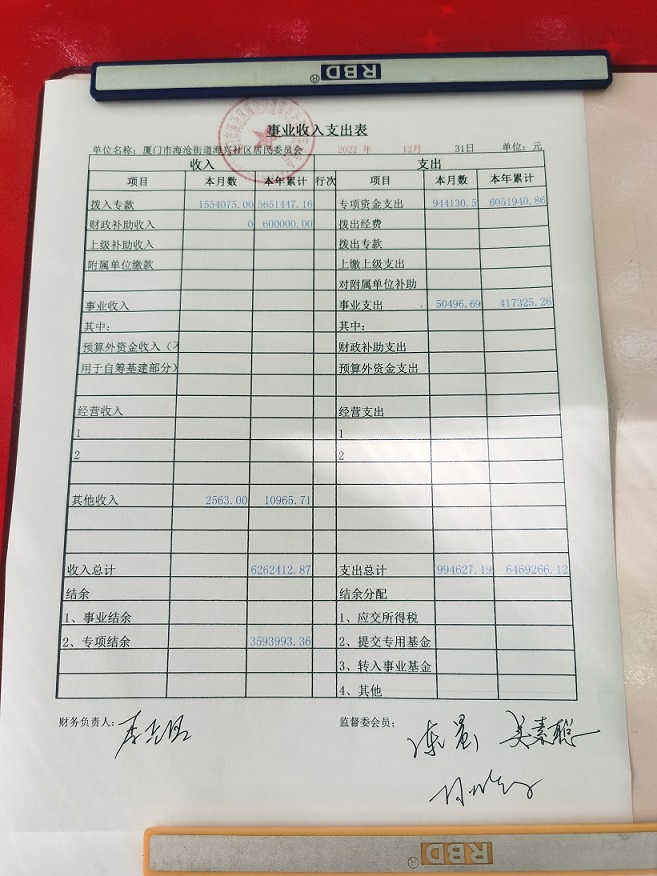 RBD®
事业收入支出表
单位名称：厦门市海沧街道海兴社区居民委员会 2022 年 12月 31日 单位：元
收入 支出
项目 本月数 本年累计 行次 项目 本月数 本年累计
拨入专款 1554075.00 5651447.16 专项资金支出 944130.5 6051940.86
财政补助收入 0 600000.00 拨出经费
上级补助收入 拨出专款
附属单位缴款 上缴上级支出
对附属单位补助
事业收入 事业支出 50496.69 417325.26
其中： 其中：
预算外资金收入（不 财政补助支出
用于自筹基建部分） 预算外资金支出
经营收入 经营支出
1 1
2 2
其他收入 2563.00 10965.71
收入总计 6262412.87 支出总计 994627.19 6469266.12
结余 结余分配
1、事业结余 1、应交所得税
2、专项结余 3593993.36 2、提交专用基金
3、转入事业基金
4、其他
财务负责人： 监督委会员：
RBD®